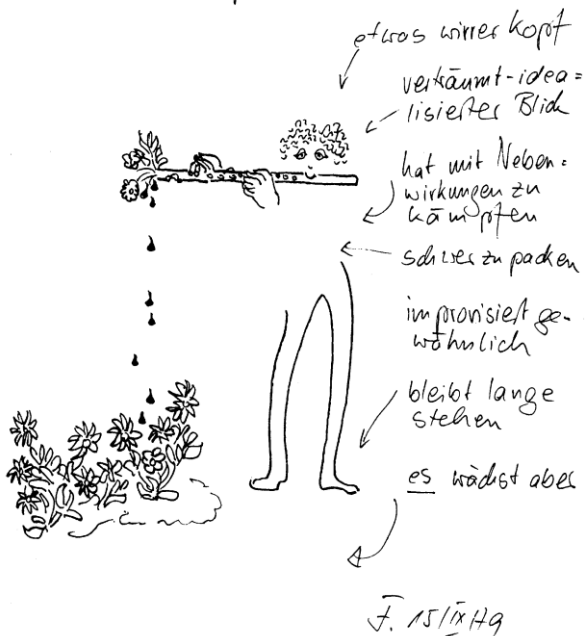 etwas wirrer Kopf
verträumt-idea=
lisierter Blick
hat mit Neben=
wirkungen zu
kämpfen
schwer zu packen
improvisiert ge-
wöhnlich
bleibt lange
stehen
es wächst aber
F. 15/IX